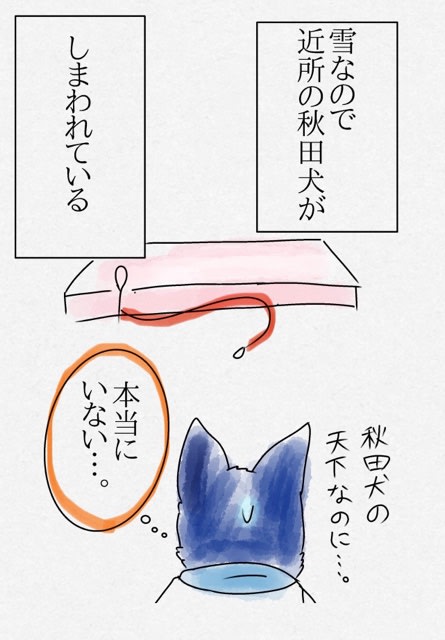 雪なので
近所の秋田犬が
しまわれている
本当に
いない…。
秋田犬の
天下なのに…。